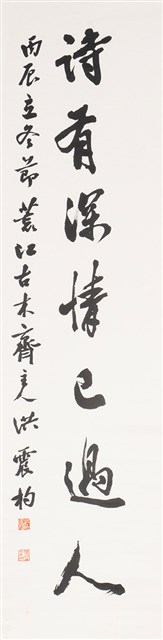 詩有深情已過人
丙辰立冬節菱江古木齋主人洪震杓